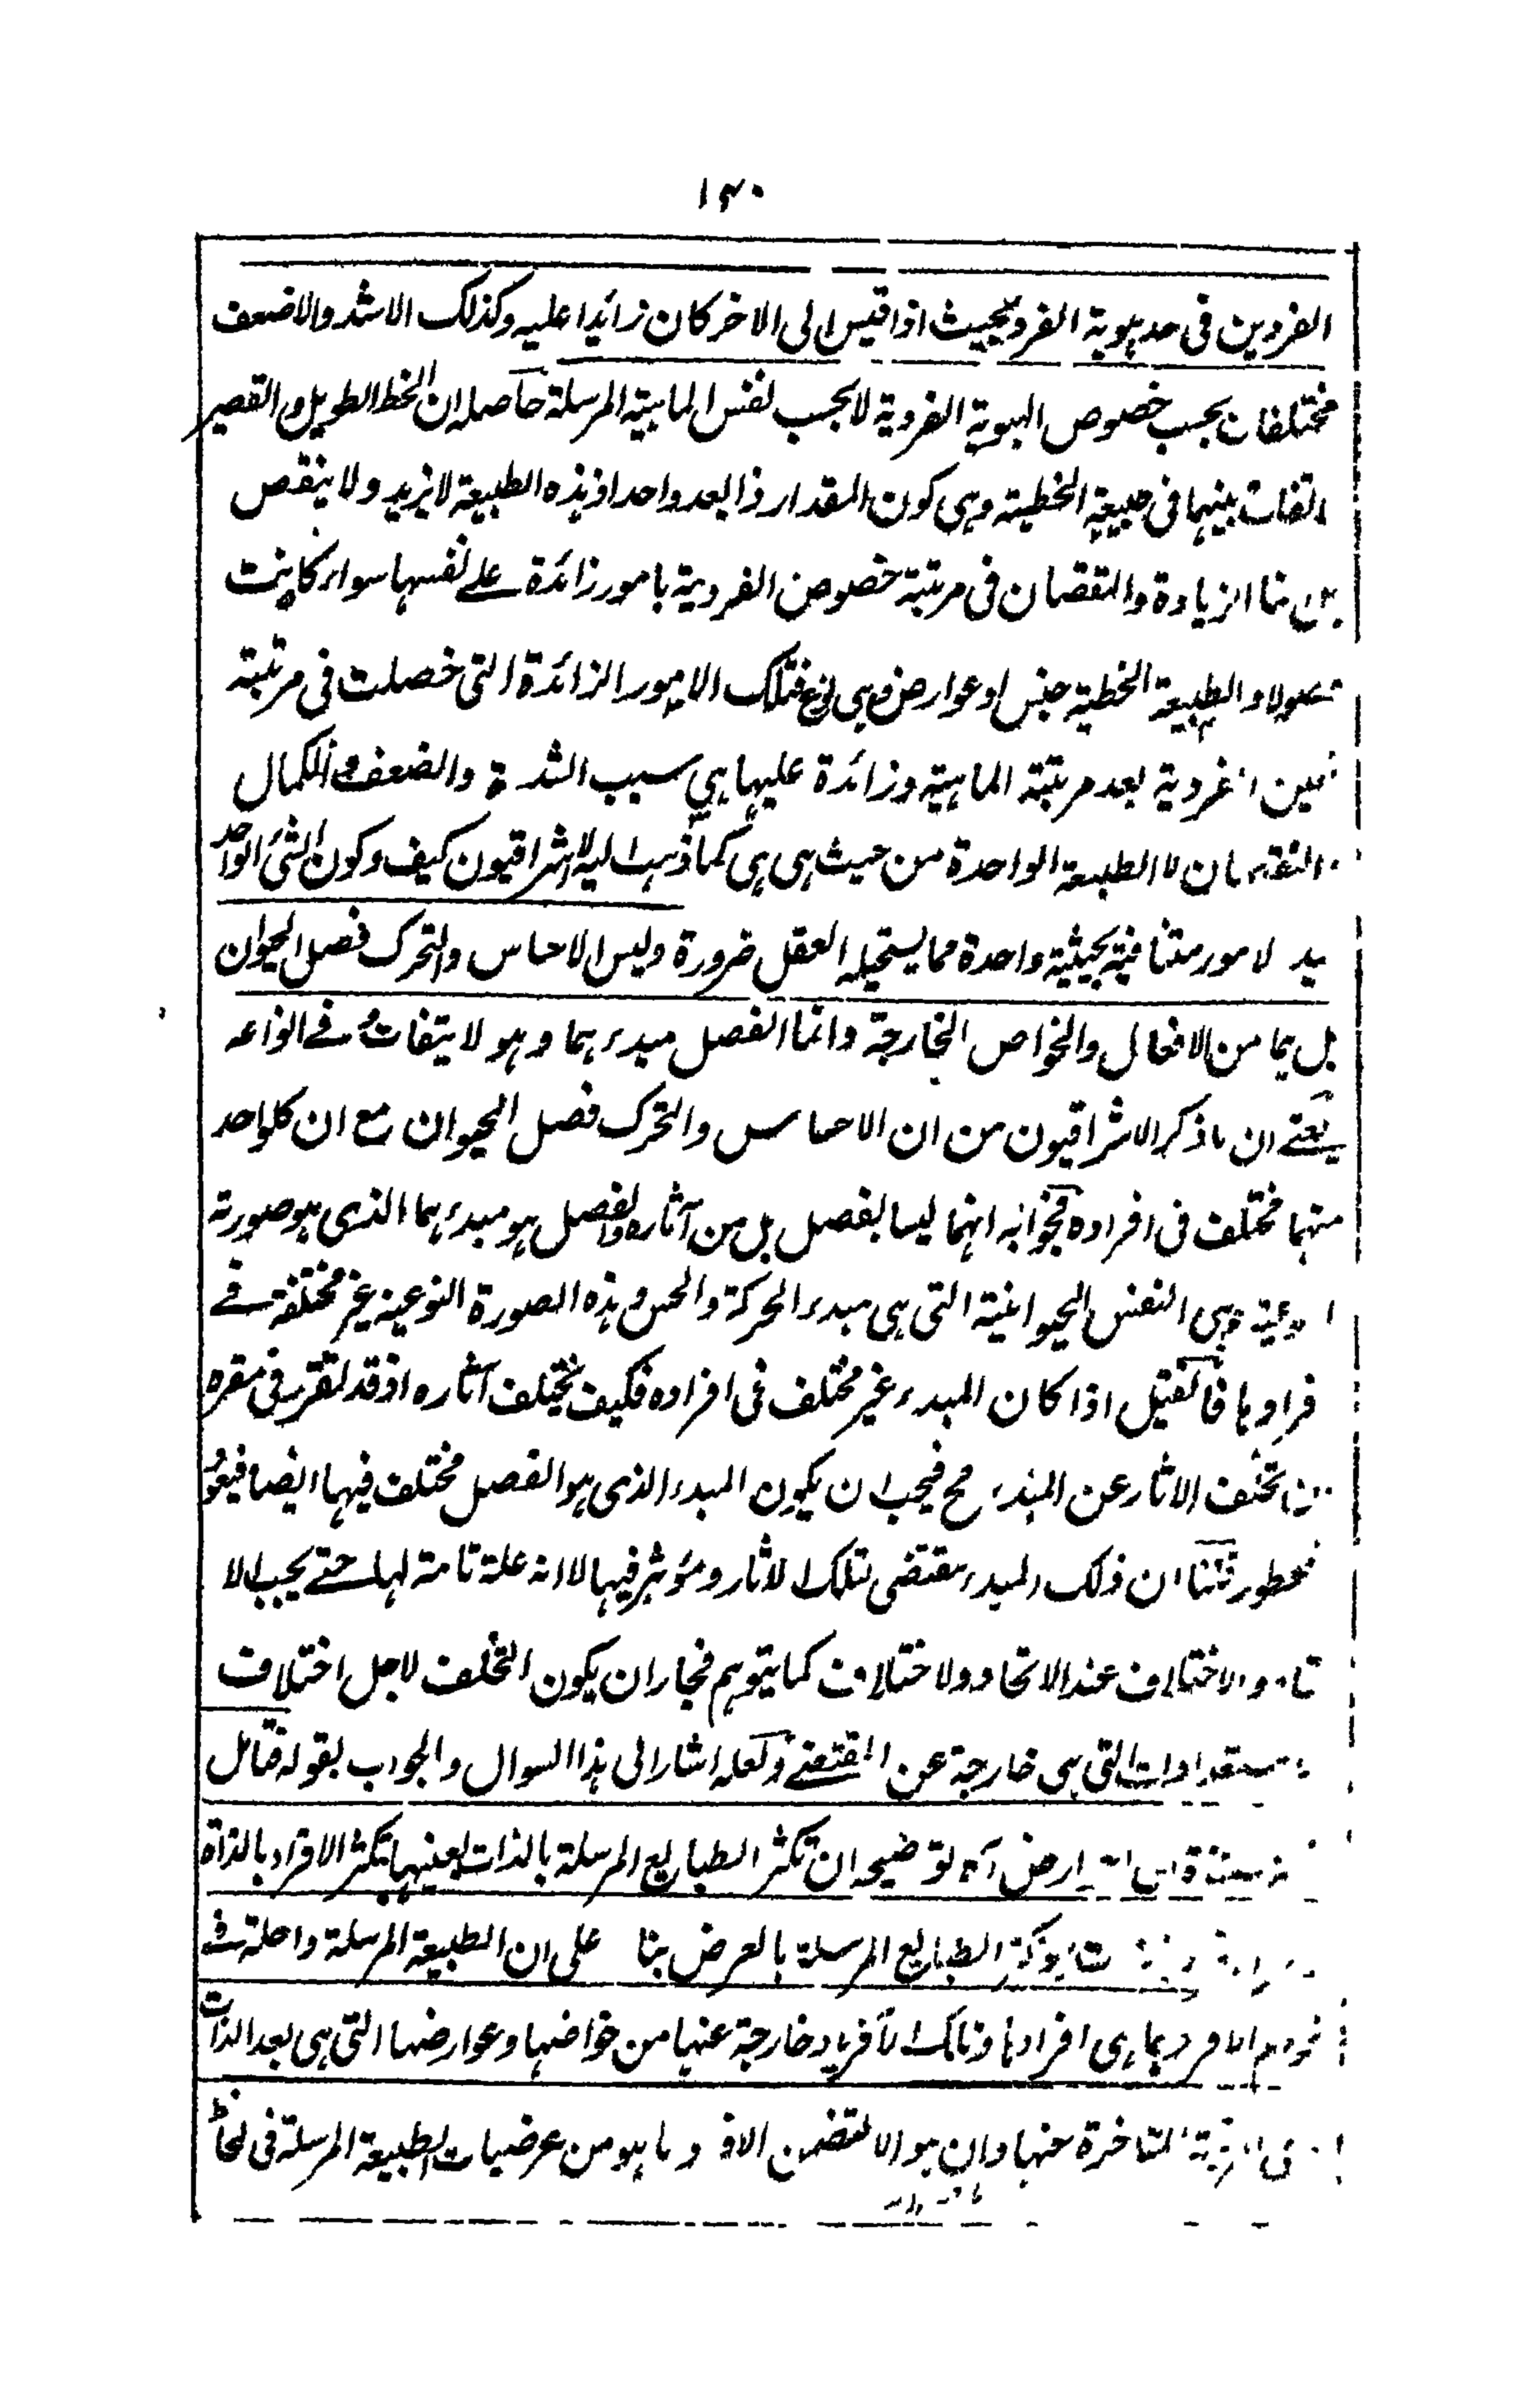 ١٤٠
الفردين فى حد هوية الفرد بحيث اذا قيس الى الاخر كان زائدا عليه وكذلك الاشد والاضعف
مختلفان بحسب خصوص الهوية الفردية لا بحسب نفس الماهية المرسلة حاصله ان الخط الطويل والقصير
تفات بينهما فى طبيعة الخطية وهى كون المقدار ذا بعد واحد اذ هذه الطبيعة لا يزيد ولا ينقص
الزيادة والنقصان فى مرتبة خصوص الفردية بامور زائدة على نفسها سواء كانت
والطبيعة الخطية جنس او عوارض وهى نوع فتلك الامور الزائدة التى حصلت فى مرتبة
الفردية بعد مرتبة الماهية وزائدة عليها هى سبب الشدة والضعف والكمال
والنقصان لا الطبيعة الواحدة من حيث هى هى كما ذهب اليه الاشراقيون كيف وكون الشئ الواحد
لامور متنافية بحيثية واحدة مما يستحيله العقل ضرورة وليس الاحساس والتحرك فصل الحيوان
بل هما من الافعال والخواص الخارجة وانما الفصل مبدءهما وهو لا يتفات فى انواعه
يعنى ان ما ذكر الاشراقيون من ان الاحساس والتحرك فصل الحيوان مع ان كلواحد
منهما مختلف فى افراده فجوابه انهما ليسا بفصل بل من آثاره والفصل هو مبدءهما الذى هو صورته
وهى النفس الحيوانية التى هى مبدء الحركة والحس وهذه الصورة النوعية غير مختلفة فى
فرادها فانقيل اذا كان المبدء غير مختلف فى افراده فكيف يختلف آثاره اذ قد تقرر فى مقره
تخلف الاثار عن المبدء مح فيجب ان يكون المبدء الذى هو الفصل مختلف فيها ايضا فيعود
قلنا ان ذلك المبدء مقتضى لتلك الاثار ومؤثر فيها لا انه علة تامة لها حتى يجب الا
والاختلاف عند الاتحاد ولاختلاف كما يتوهم فجاز ان يكون التخلف لاجل اختلاف
ستعدادات التى هى خارجة عن المقتضى ولعله اشار الى هذا السوال والجواب بقوله فتامل
آه توضيحه ان تكثر الطبايع المرسلة بالذات بعينها تكثر الافراد بالذات
الطبايع المرسلة بالعرض بنا على ان الطبيعة المرسلة داخلة فى
بما هى افرادها وتلك الافراد خارجة عنها من خواصها وعوارضها التى هى بعد الذات
المتاخرة عنها وان هو الا لتضمن ما هو من عرضيات الطبيعة المرسلة فى لحاظ